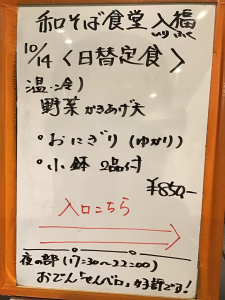 和そば食堂 入福
いり ふく
10/14 〈日替定食〉
温・冷)
野菜かきあげ天
・おにぎり(ゆかり)
・小鉢 2品付
¥850-
入口こちら
夜の部(17:30~22:00)
おでん「せんべロ」が好評です!